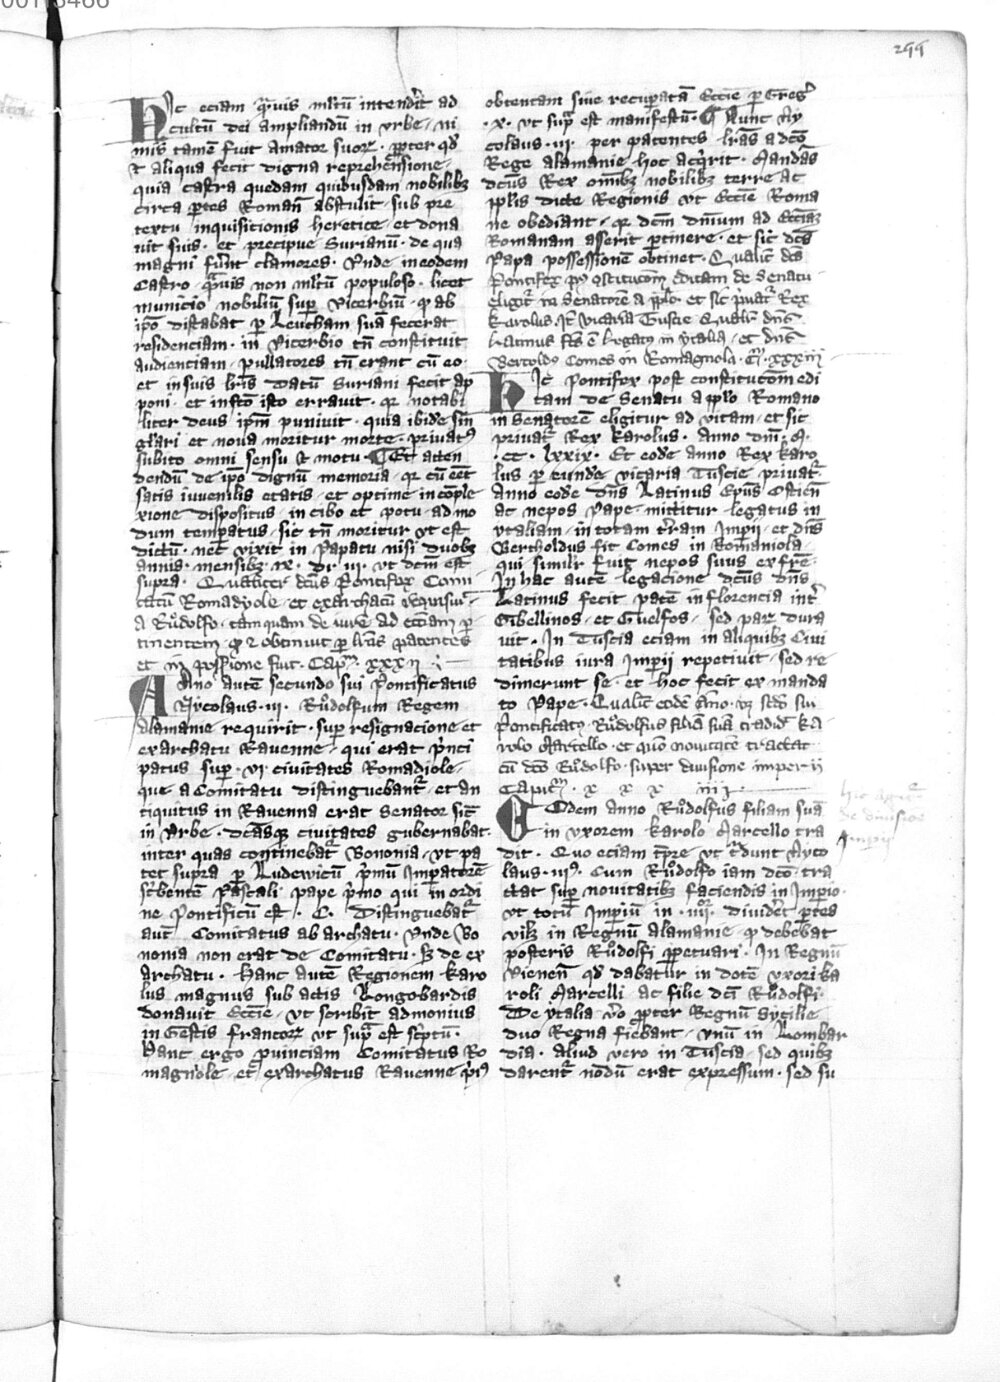 299
Hic eciam qͣuis ml̄tū intend̄it ad
cultū dei ampliandū in vrbe · ni
mis tamē fuit amator suoꝝ · ꝓpter qd̄
et aliqua fecit digna rep̄rehensione ·
quia castra quedam quibusdam nobilibꝫ
circa ꝑtes Roman̄ abstulit · sub pre
textu inquisicionis heretice · et dona
uit suis · et precipue Surianū · de qua
magni fūnt clamores · vnde in eodem
Castro · qͣuis non ml̄tū populoso · licet
municio nobiliū suꝑ viterbiū · ꝙ ab
ip̄o distabat ꝑ leucham suā fecerat
residenciam · in viterbio tn̄ constituit
audienciam · pullatores tn̄ erant cū eo ·
et in suis lr̄is datū Suriani fecit ap
poni · et in fc̄o isto errauit · qꝛ notabi
liter deus ip̄m puniuit · quia ibidē sin
gl̄ari et noua moritur morte · priuatꝰ
subito omni sensu et motu · ¶ Et atten
dendū de ip̄o dignū memoria · qꝛ cū eēt
satis iuuenilis etatis · et optime in cōple
xione dispositus · in cibo et potu · ad mo
dum temꝑatus · sic tn̄ moritur vt est
dictū · nec vixit in Papatu nisi duobꝫ
annis · mensibꝫ · ix · di · iii · vt dcm̄ est
supra · Qualiter dc̄us Pontifex Comi
tatū Romadyole · et exarchatū reqͥsiuit
A Rudolfo · tamquam de iure ad ecc̄iam ꝑ
tinentem · ꝙ et obtinuit ꝑ lr̄as patentes
et in possessione fuit · Capm̄ · xxxii ·
Anno autē secundo sui Pontificatus
Nycolaus · iii · Rudolfum Regem
Alamanie requirit · suꝑ resignacione et
exarchatu Rauenne · qui erat p̄nci
patus suꝑ · vi · ciuitates Romadiole ·
que a Comitatu distinguebantͬ · et an
tiquitus in Rauenna erat Senator sic̄
in vrbe · dc̄asqꝫ ciuitates gubernabat
inter quas continebatͬ Bononia · vt pa
tet supra ꝑ Ludewicū p̄mū Impatorē
sc̄bentē Pascali pape p̄mo qui in ordi
ne Pontificū est · C · distinguebatͬ
aut̄ Comitatus ab archatu · vnde Bo
nonia non erat de Comitatu · sꝫ de ex
archatu · hanc autē Regionem Karo
lus magnus sub actis Longobardis
donauit Ecc̄ie · vt scribit admonius
in Gestis francoꝝ vt supͣ est sc̄ptū ·
hanc ergo ꝓuinciam Comitatus Ro
magnole · et exarchatus Rauenne p̄iꝰ
obtentam siue recuꝑatā Ecc̄ie ꝑ Gregͦ
· x · vt supͣ est manifestū · ¶ Nunc Ny
colaus · iii · per patentes lr̄as a dc̄o
Rege alamanie hoc acq̄rit · Mandās
dc̄us Rex om̄ibꝫ nobilibꝫ terre ac
pp̄lis dicte Regionis vt Ecc̄ie Roma
ne obediant · qꝛ dcm̄ dn̄ium ad Ecc̄iaꝫ
Romanam asserit ꝑtinere · et sic dc̄s
Papa possessionē obtinet · Qualit̄ dc̄s
Pontifex pꝰ ꝯstitucōm editam de Senatu
eligitͬ in Senatorē a pp̄lo · et sic p̄uatͬ Rex
Karolus · It̄ vicaria Tuscie Qualit̄ dn̄s
Latinus fc̄s ē legatꝰ in ytalia · et dn̄s
Bertoldꝰ Comes in Romagnola · Cm̄ · xxxiii
Hic Pontifex post constitucōm edi
tam de Senatu a pp̄lo Romano
in Senatorē eligitur ad vitam · et sic
priuatͬ Rex Karolus · Anno dn̄i · M ·
· cc · lxxix · Et eodē anno Rex Karo
lus ꝑ eundē vicaria Tuscie priuatͬ
Anno eodē dn̄s Latinus Ep̄us Ostien̄
ac nepos Pape · mittitur legatus in
ytaliam · in totam tr̄ram Imp̄ii · et dn̄s
Bertholdus fit Comes in Romaniola ·
qui simil̄r fuit nepos suus ex fr̄e ·
In hac autē legacione dc̄us dn̄s
Latinus fecit pacē in florencia int̄
Gibellinos · et Guelfos · sed paꝝ dura
uit · In Tuscia eciam in aliquibꝫ Ciui
tatibus iura Imperii repetiuit · sed re
dimerunt se · et hoc fecit ex manda
to Pape · Qualit̄ eodē Anno · vꝫ scd̄o sui
Pontificatꝰ Rudolfus filiā suā tradid̄ Ka
rolo Martello · et quō nouiter tractat
cū dc̄o Rudolfo · super diuisione imperii
Capitm̄ · x x x iiii
Eodem anno Rudolfus filiam suā
in vxorem Karolo Marcello tra
dit · Quo eciam tp̄re vt tͣdunt Nyco
laus · iiiꝰ · Cum Rudolfo iam dc̄o · tra
ctat suꝑ nouitatibꝫ faciendis in Imperio ·
vt totū Imperiū in · iiiiͦʳ · diuidet̄ ꝑtes
vilꝫ in Regnū Alamanie · ꝙ debebat
posteris Rudolfi ꝑpetuari · In Regnū
vienen̄ qd̄ dabatur in dotē vxori ka
roli Marcelli ac filie dc̄i Rudolfi ·
De ytalia v̄o ꝓpter Regnū Sycilie
duo Regna fiebant · vnū in Lombar
dia · aliud vero in Tuscia · sed quibꝫ
darentͬ nōdū erat expressum · sed su
hic agitͬ
de diuisione
Imperii